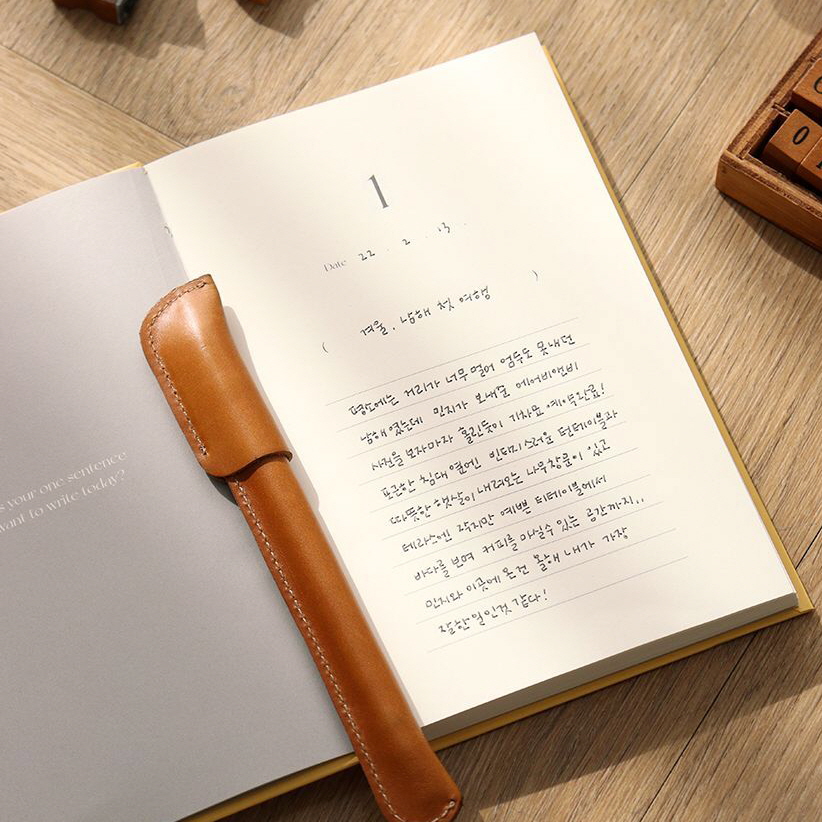 s your one sentence
want to write today?
1
Date 22 . 2 . 13 .
( 겨울, 남해 첫 여행 )
평소에는 거리가 너무 멀어 엄두도 못내던
남해였는데 민지가 보내준 에어비앤비
사진을 보자마자 홀린듯이 기차표 예약완료!
포근한 침대 옆엔 빈티지스러운 턴테이블과
따뜻한 햇살이 내려오는 나무창문이 있고
테라스엔 작지만 예쁜 티테이블에서
바다를 보며 커피를 마실수 있는 공간까지..
민지와 이곳에 온건 올해 내가 가장
잘한일인것 같다!
0